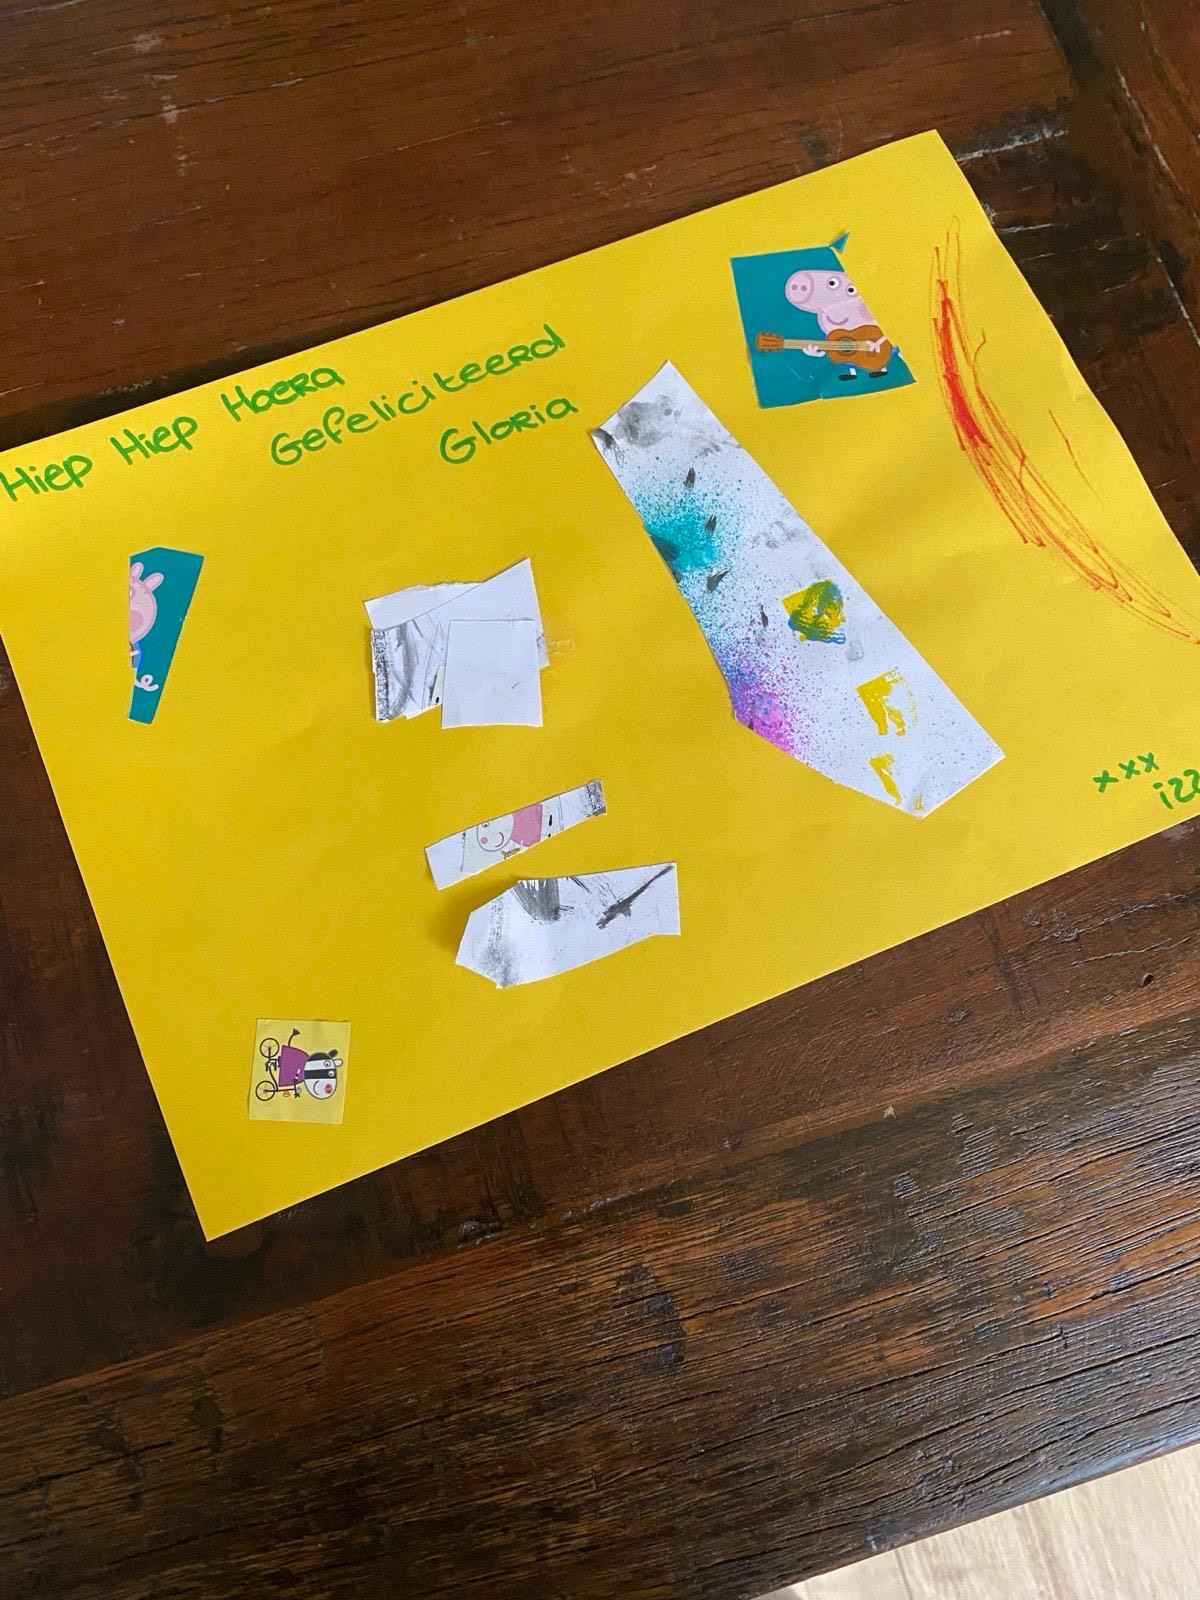 Hiep Hiep Hoera
Gefeliciteerd
Gloria
xxx